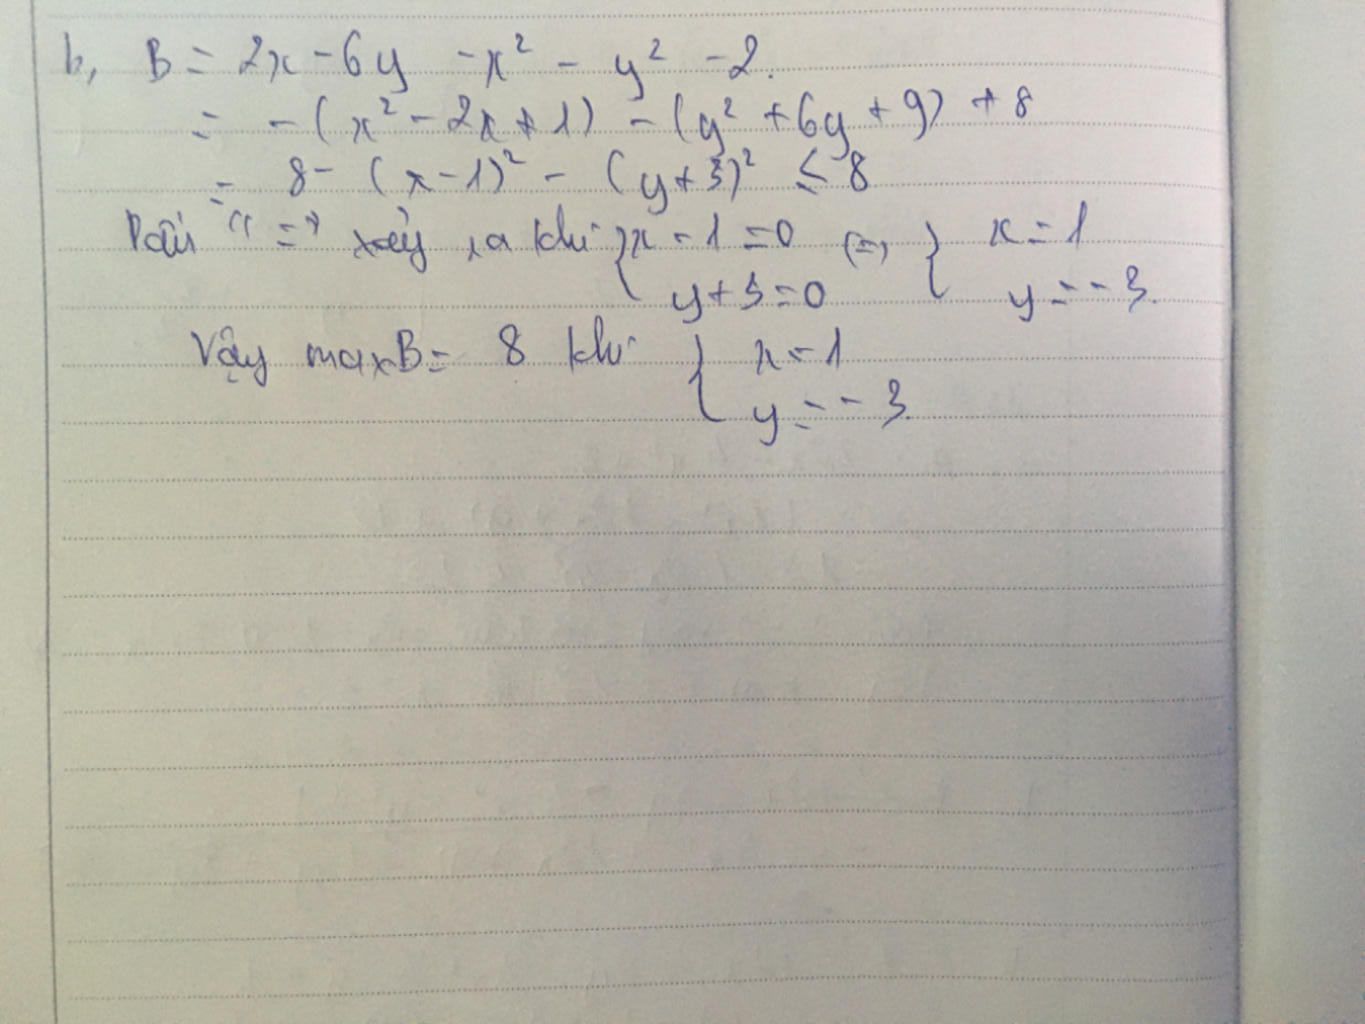 b, B = 2x - 6y - x² - y² - 2.
= - (x² - 2x + 1) - (y² + 6y + 9) + 8
= 8 - (x - 1)² - (y + 3)² ≤ 8
Dấu "=" xảy ra khi { x - 1 = 0 (=) { x = 1
y + 3 = 0 y = - 3.
Vậy maxB = 8 khi { x = 1
y = - 3.